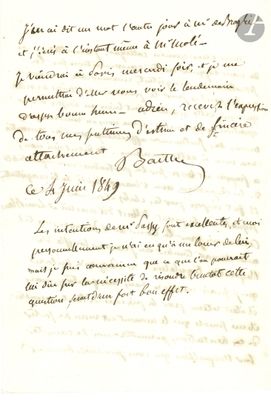 J'en ai dit un mot l'autre jour à Mr de Broglie
et j'écris à l'instant même à Mr Molé.
Je viendrai à Paris mercredi soir, et je me
permettrai d'aller vous voir le lendemain
d'assez bonne heure - adieu, recevez l'expression
de tous mes sentimens d'estime et de sincère
attachement
Barthe
Ce 4 Juin 1849
Les intentions de Mr Passy sont excellentes, et moi
personnellement je n'ai eu qu'à me louer de lui,
mais je suis convaincu que ce que l'on pourrait
lui dire sur la nécessité de résoudre bientôt cette
question serait d'un fort bon effet.